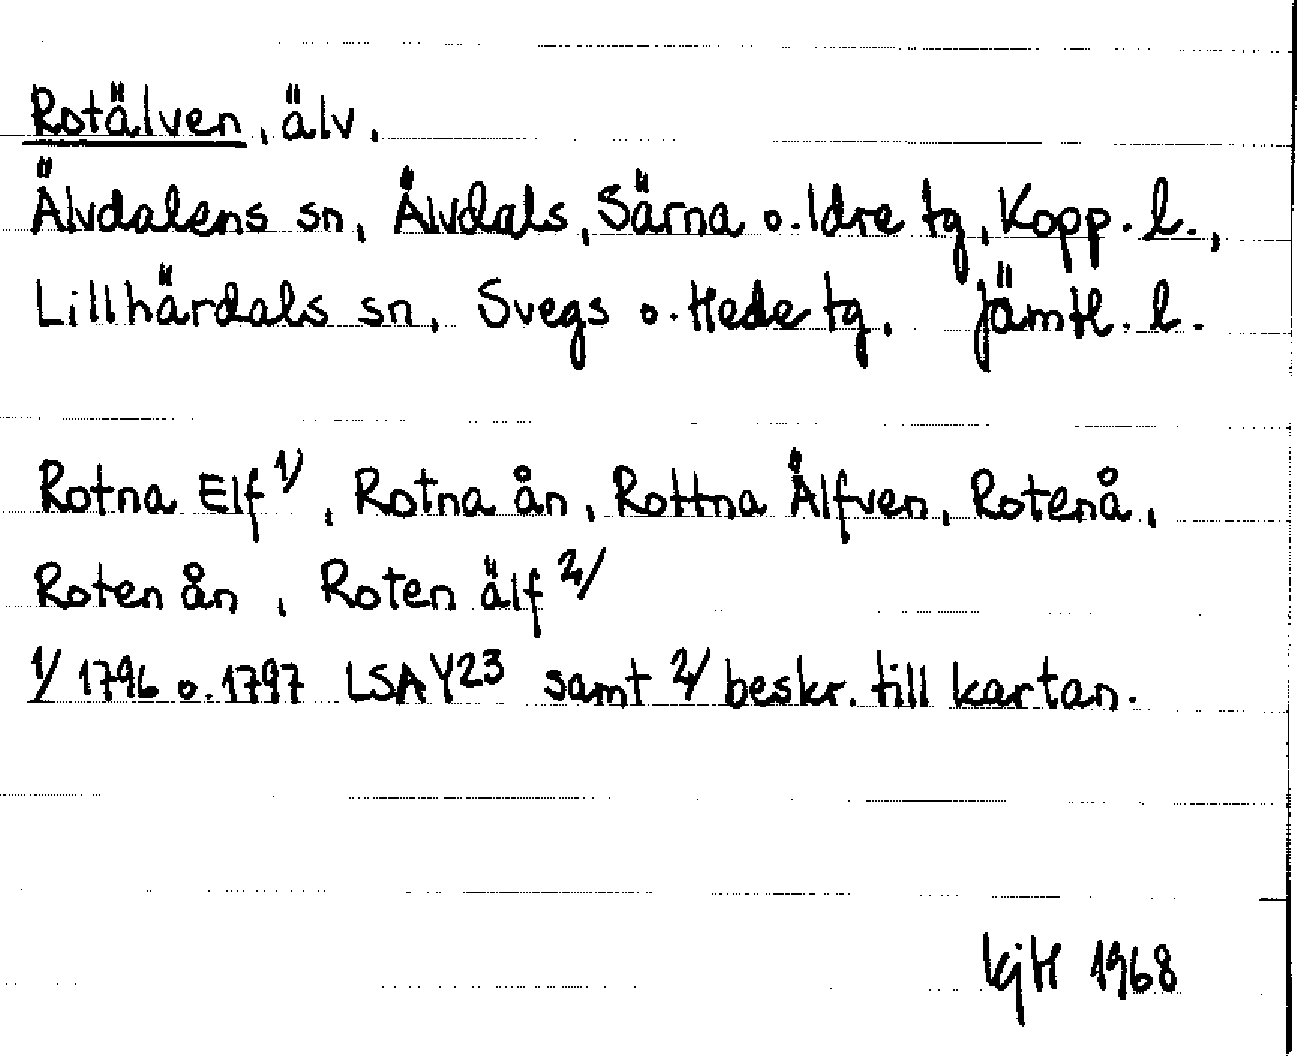 Rotälven, älv.
Älvdalens sn, Älvdals, Särna o. Idre tg, Kopp. l.,
Lillhärdals sn, Svegs o. Hede tg. Jämtl. l.
Rotna Elf 1/, Rotna ån, Rottna Ålfven, Rotenå,
Roten ån, Roten älf 2/
1/ 1796 o. 1797 LSA Y23 samt 2/ beskr. till kartan.
kjH 1968